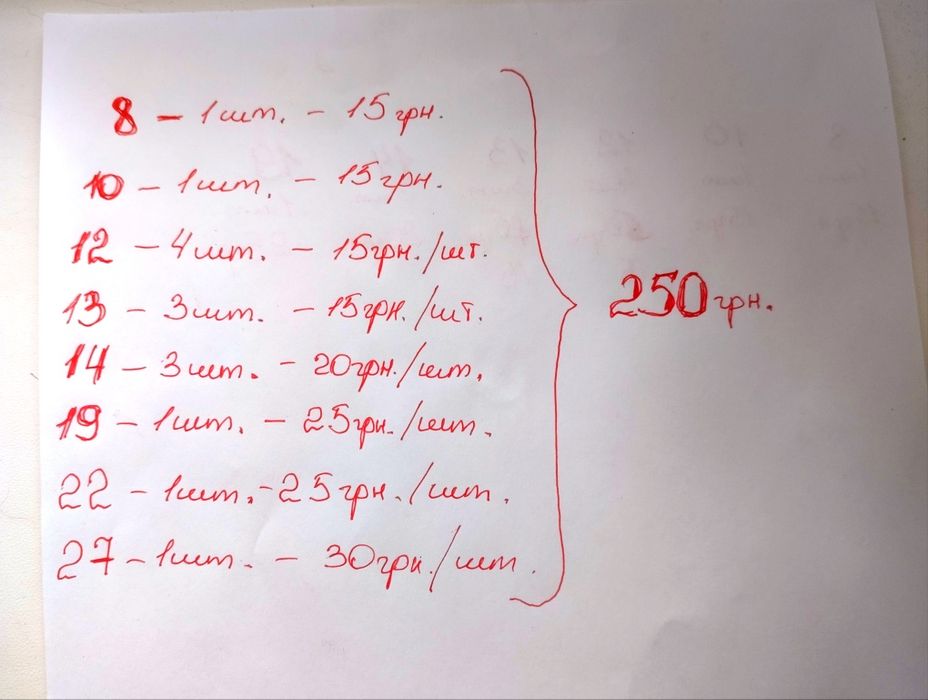 8 - 1шт. - 15грн.
10 - 1шт. - 15грн.
12 - 4шт. - 15грн./шт.
13 - 3шт. - 15грн./шт.
14 - 3шт. - 20грн./шт.
19 - 1шт. - 25грн./шт.
22 - 1шт. - 25грн./шт.
27 - 1шт. - 30грн./шт.
250грн.